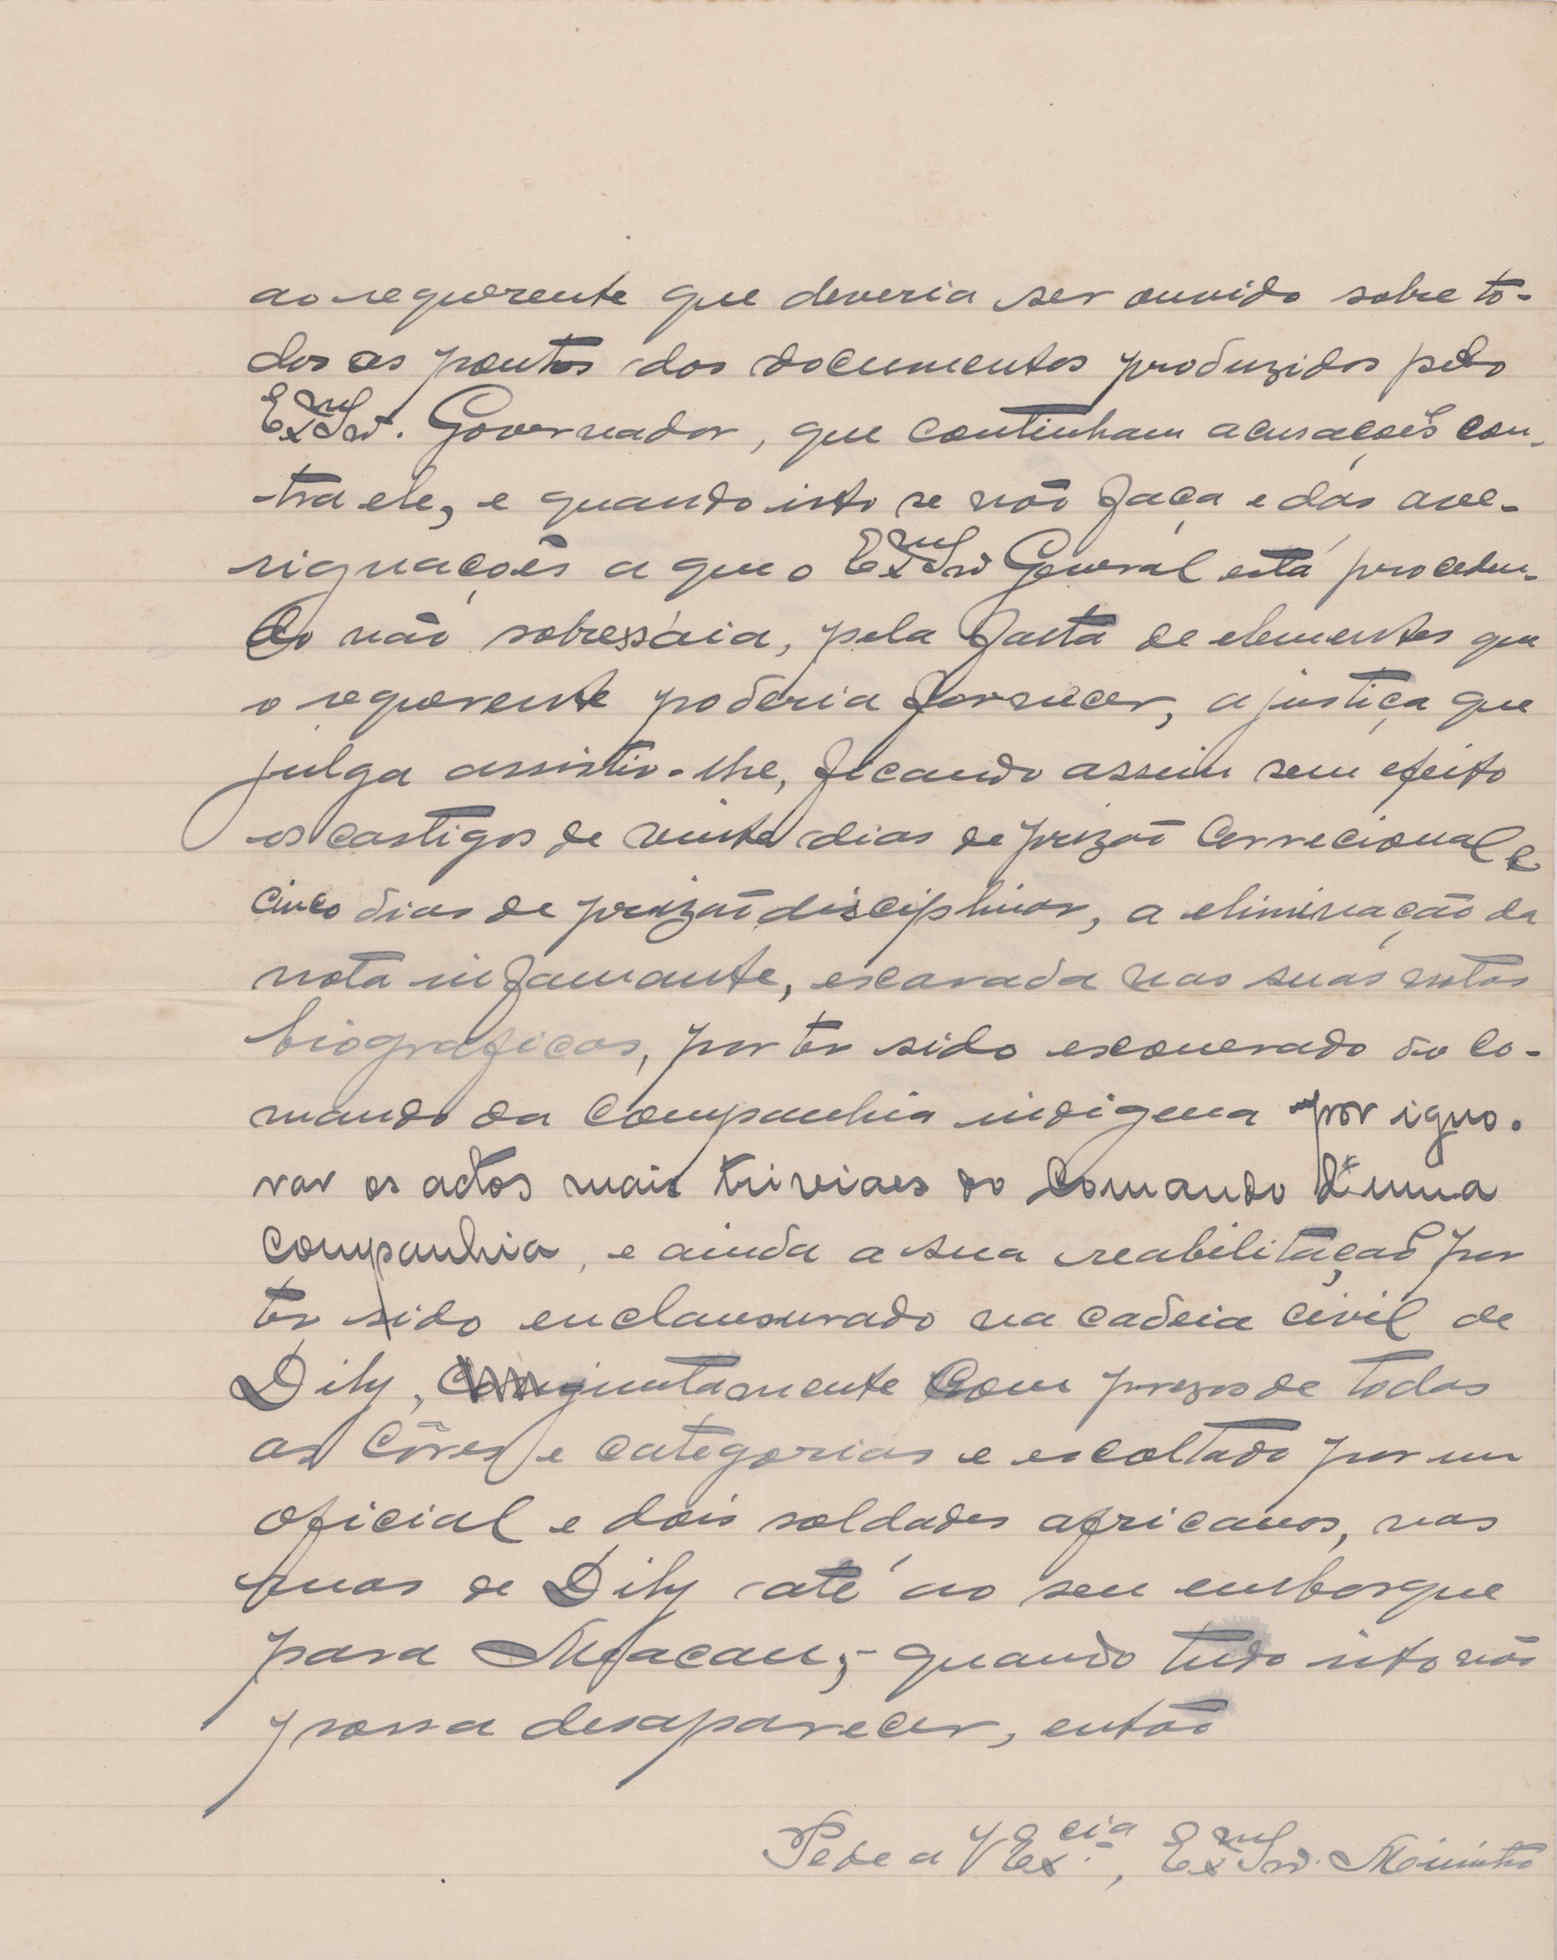 ao requerente que deveria ser ouvido sobre to-
dos os pontos dos documentos produzidos pelo
Exmº Snr. Governador, que continham acusações con-
tra ele, e quando isto se não faça e das ave-
riguações a que o Exmº Snr General está proceden-
do não sobressáia, pela falta de elementos que
o requerente poderia fornecer, a justiça que
julga assistir-lhe, ficando assim sem efeito
os castigos de vinte dias de prizão correcional e
cinco dias de prizão disciplinar, a eliminação da
nota infamante, escarada nas suas notas
biograficas, por ter sido exonerado do co-
mando da companhia indigena por igno-
rar os actos mais triviaes do comando d'uma
companhia, e ainda a sua reabilitação por
ter sido enclausurado na cadeia civil de
Dily, conjuntamente com prezos de todas
as côres e categorias e escoltado por um
oficial e dois soldados africanos, nas
ruas de Dily até ao seu embarque
para Macau; - quando tudo isto não
possa desaparecer, então
Pede a V Ex.cia, Exmº Snr. Ministro